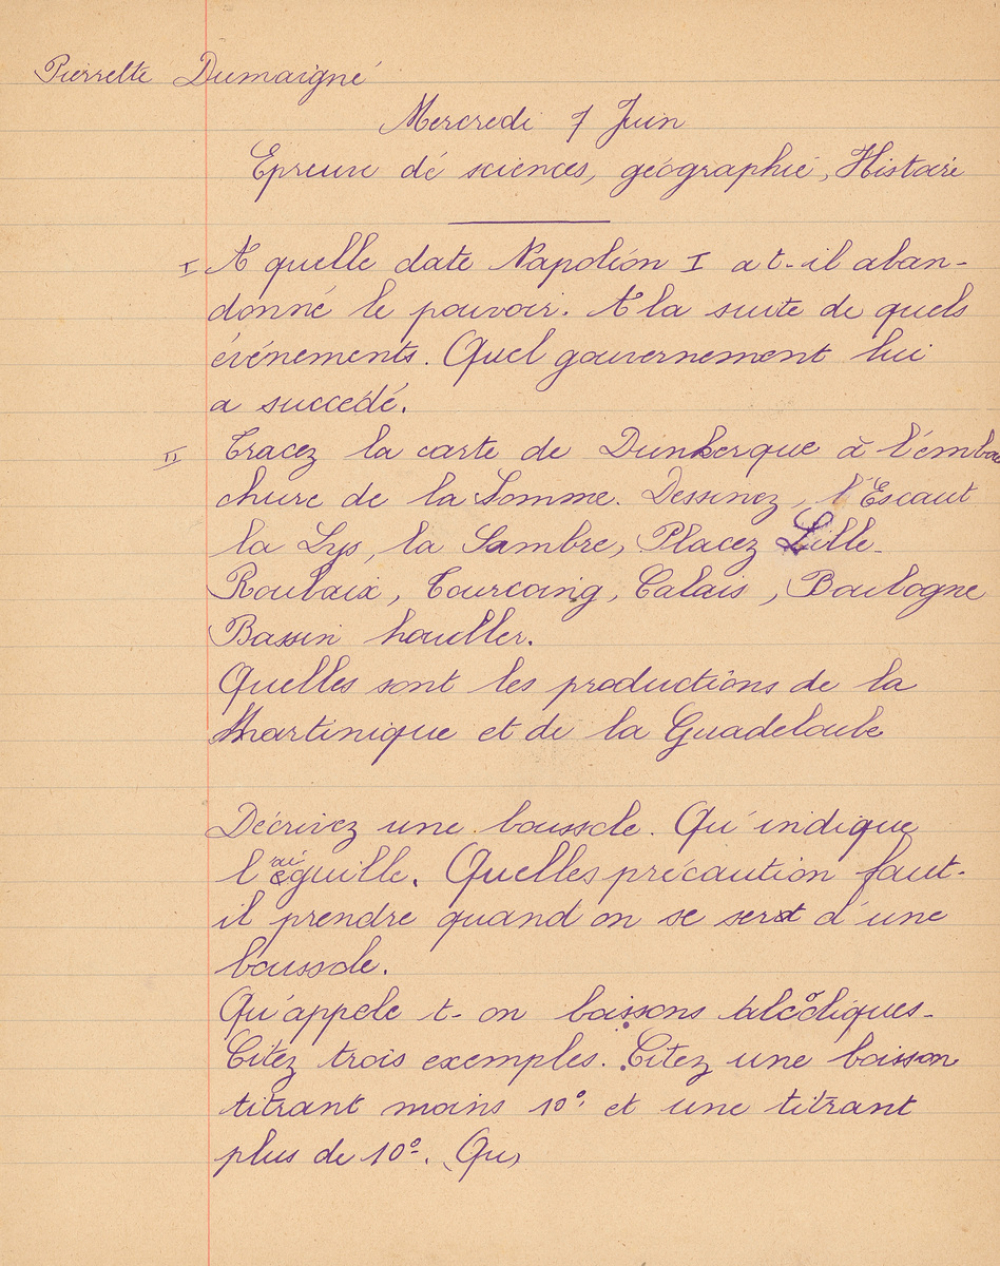 Pierrette Dumaigné
Mercredi 7 Juin
Epreuve dé sciences, géographie, Histoire
I A quelle date Napoléon I a t-il aban-
donné le pouvoir. A la suite de quels
événements. Quel gouvernement lui
a succédé.
II Tracez la carte de Dunkerque à l'embou
chure de la Somme. Dessinez, l'Escaut
la Lys, la Sambre, Placez Lille-
Roubaix, Tourcoing, Calais, Boulogne
Bassin houiller.
Quelles sont les productions de la
Martinique et de la Guadeloube
Décrivez une boussole. Qu'indique
l'aiguille. Quelles précaution faut-
il prendre quand on se sert d'une
boussole.
Qu'appele t-on boissons alcooliques-
Citez trois exemples. Citez une boisson
titrant moins 10° et une titrant
plus de 10°. Qu